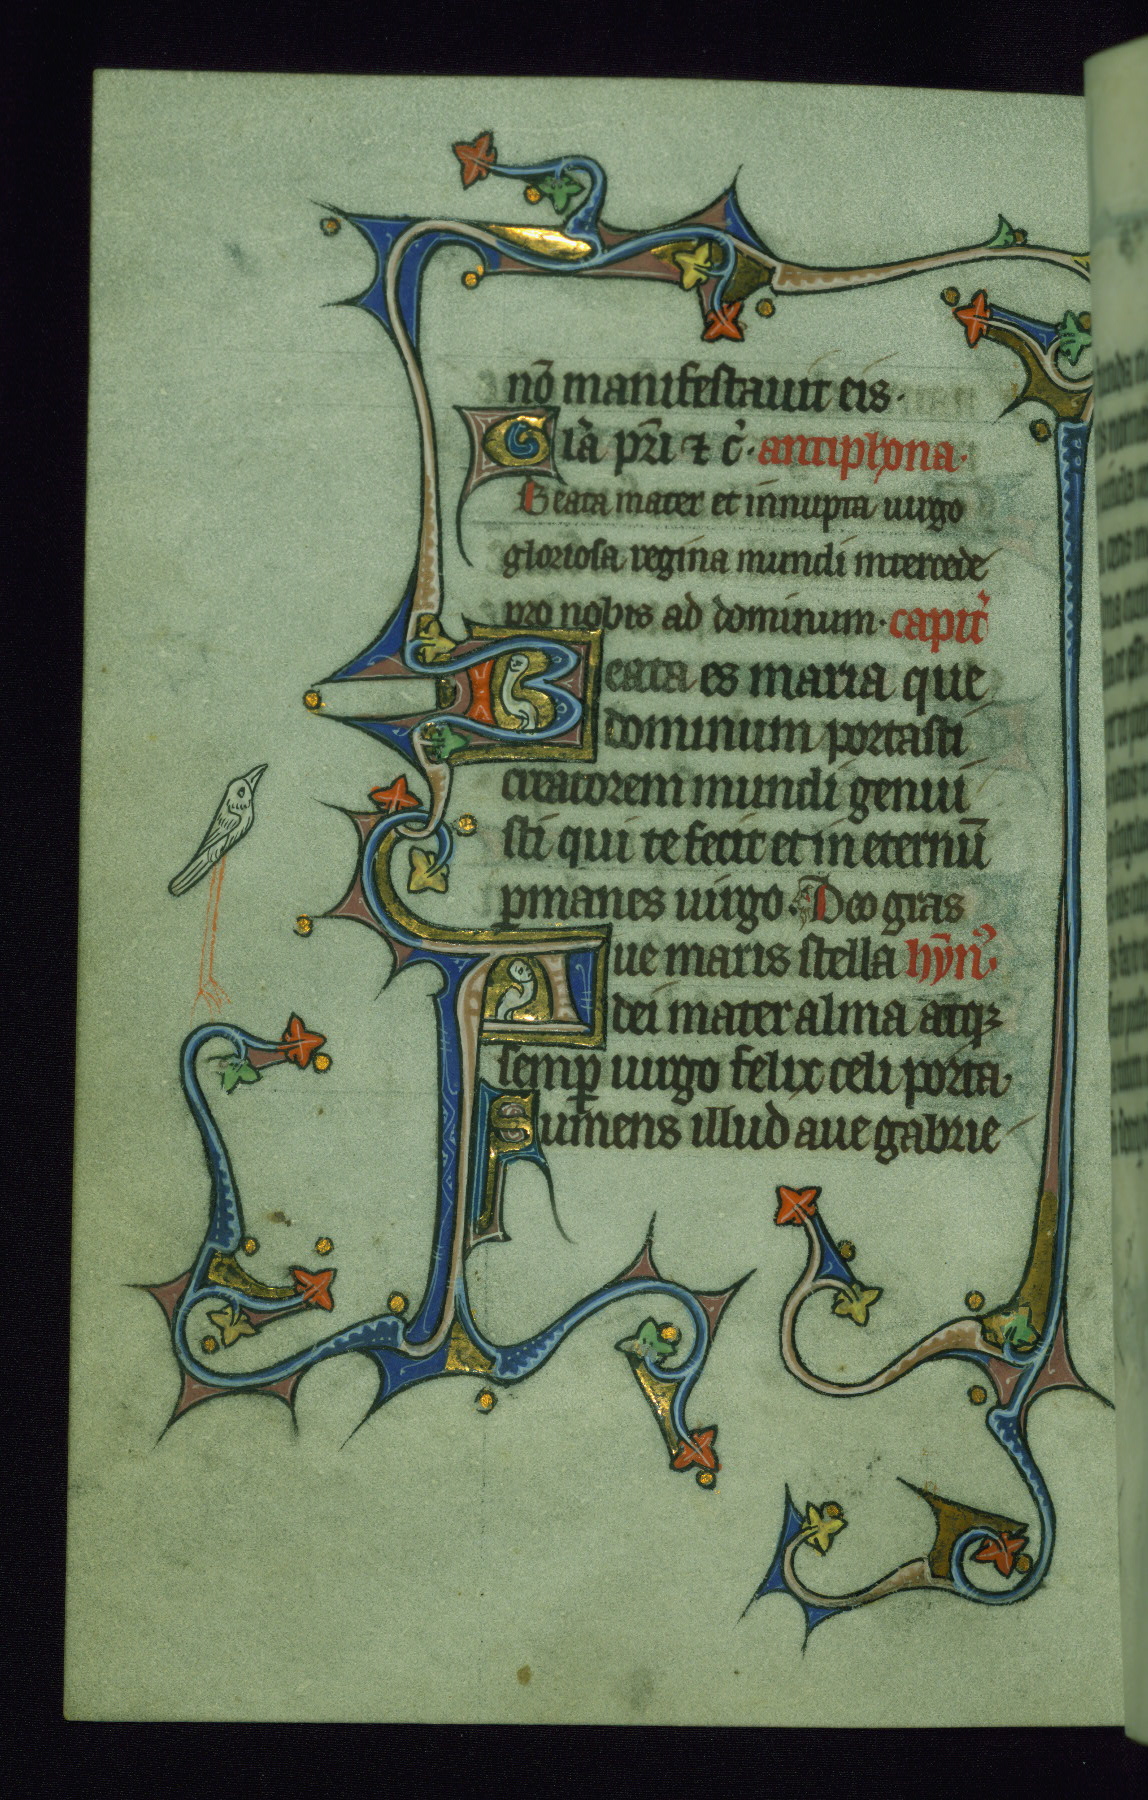 nō manifestauit eis.
Gl'a pr̄i ⁊ c̉. antiphona.
Beata mater et innupta uirgo
gloriosa regina mundi intercede
pro nobis ad dominum. capit̉
Beata es maria que
dominum portasti
creatorem mundi genui
sti qui te fecit et in eternū
ꝑmanes uirgo. Deo gr̄as
Aue maris stella hȳn̉.
dei mater alma atqꝫ
semꝑ uirgo felix celi porta.
Sumens illud aue gabrie